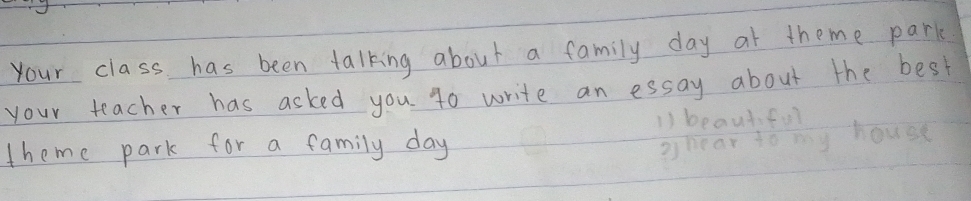 Your class has been talking about a family day at theme park
your teacher has asked you to write an essay about the best
theme park for a family day
1) beautiful
2) near to my house